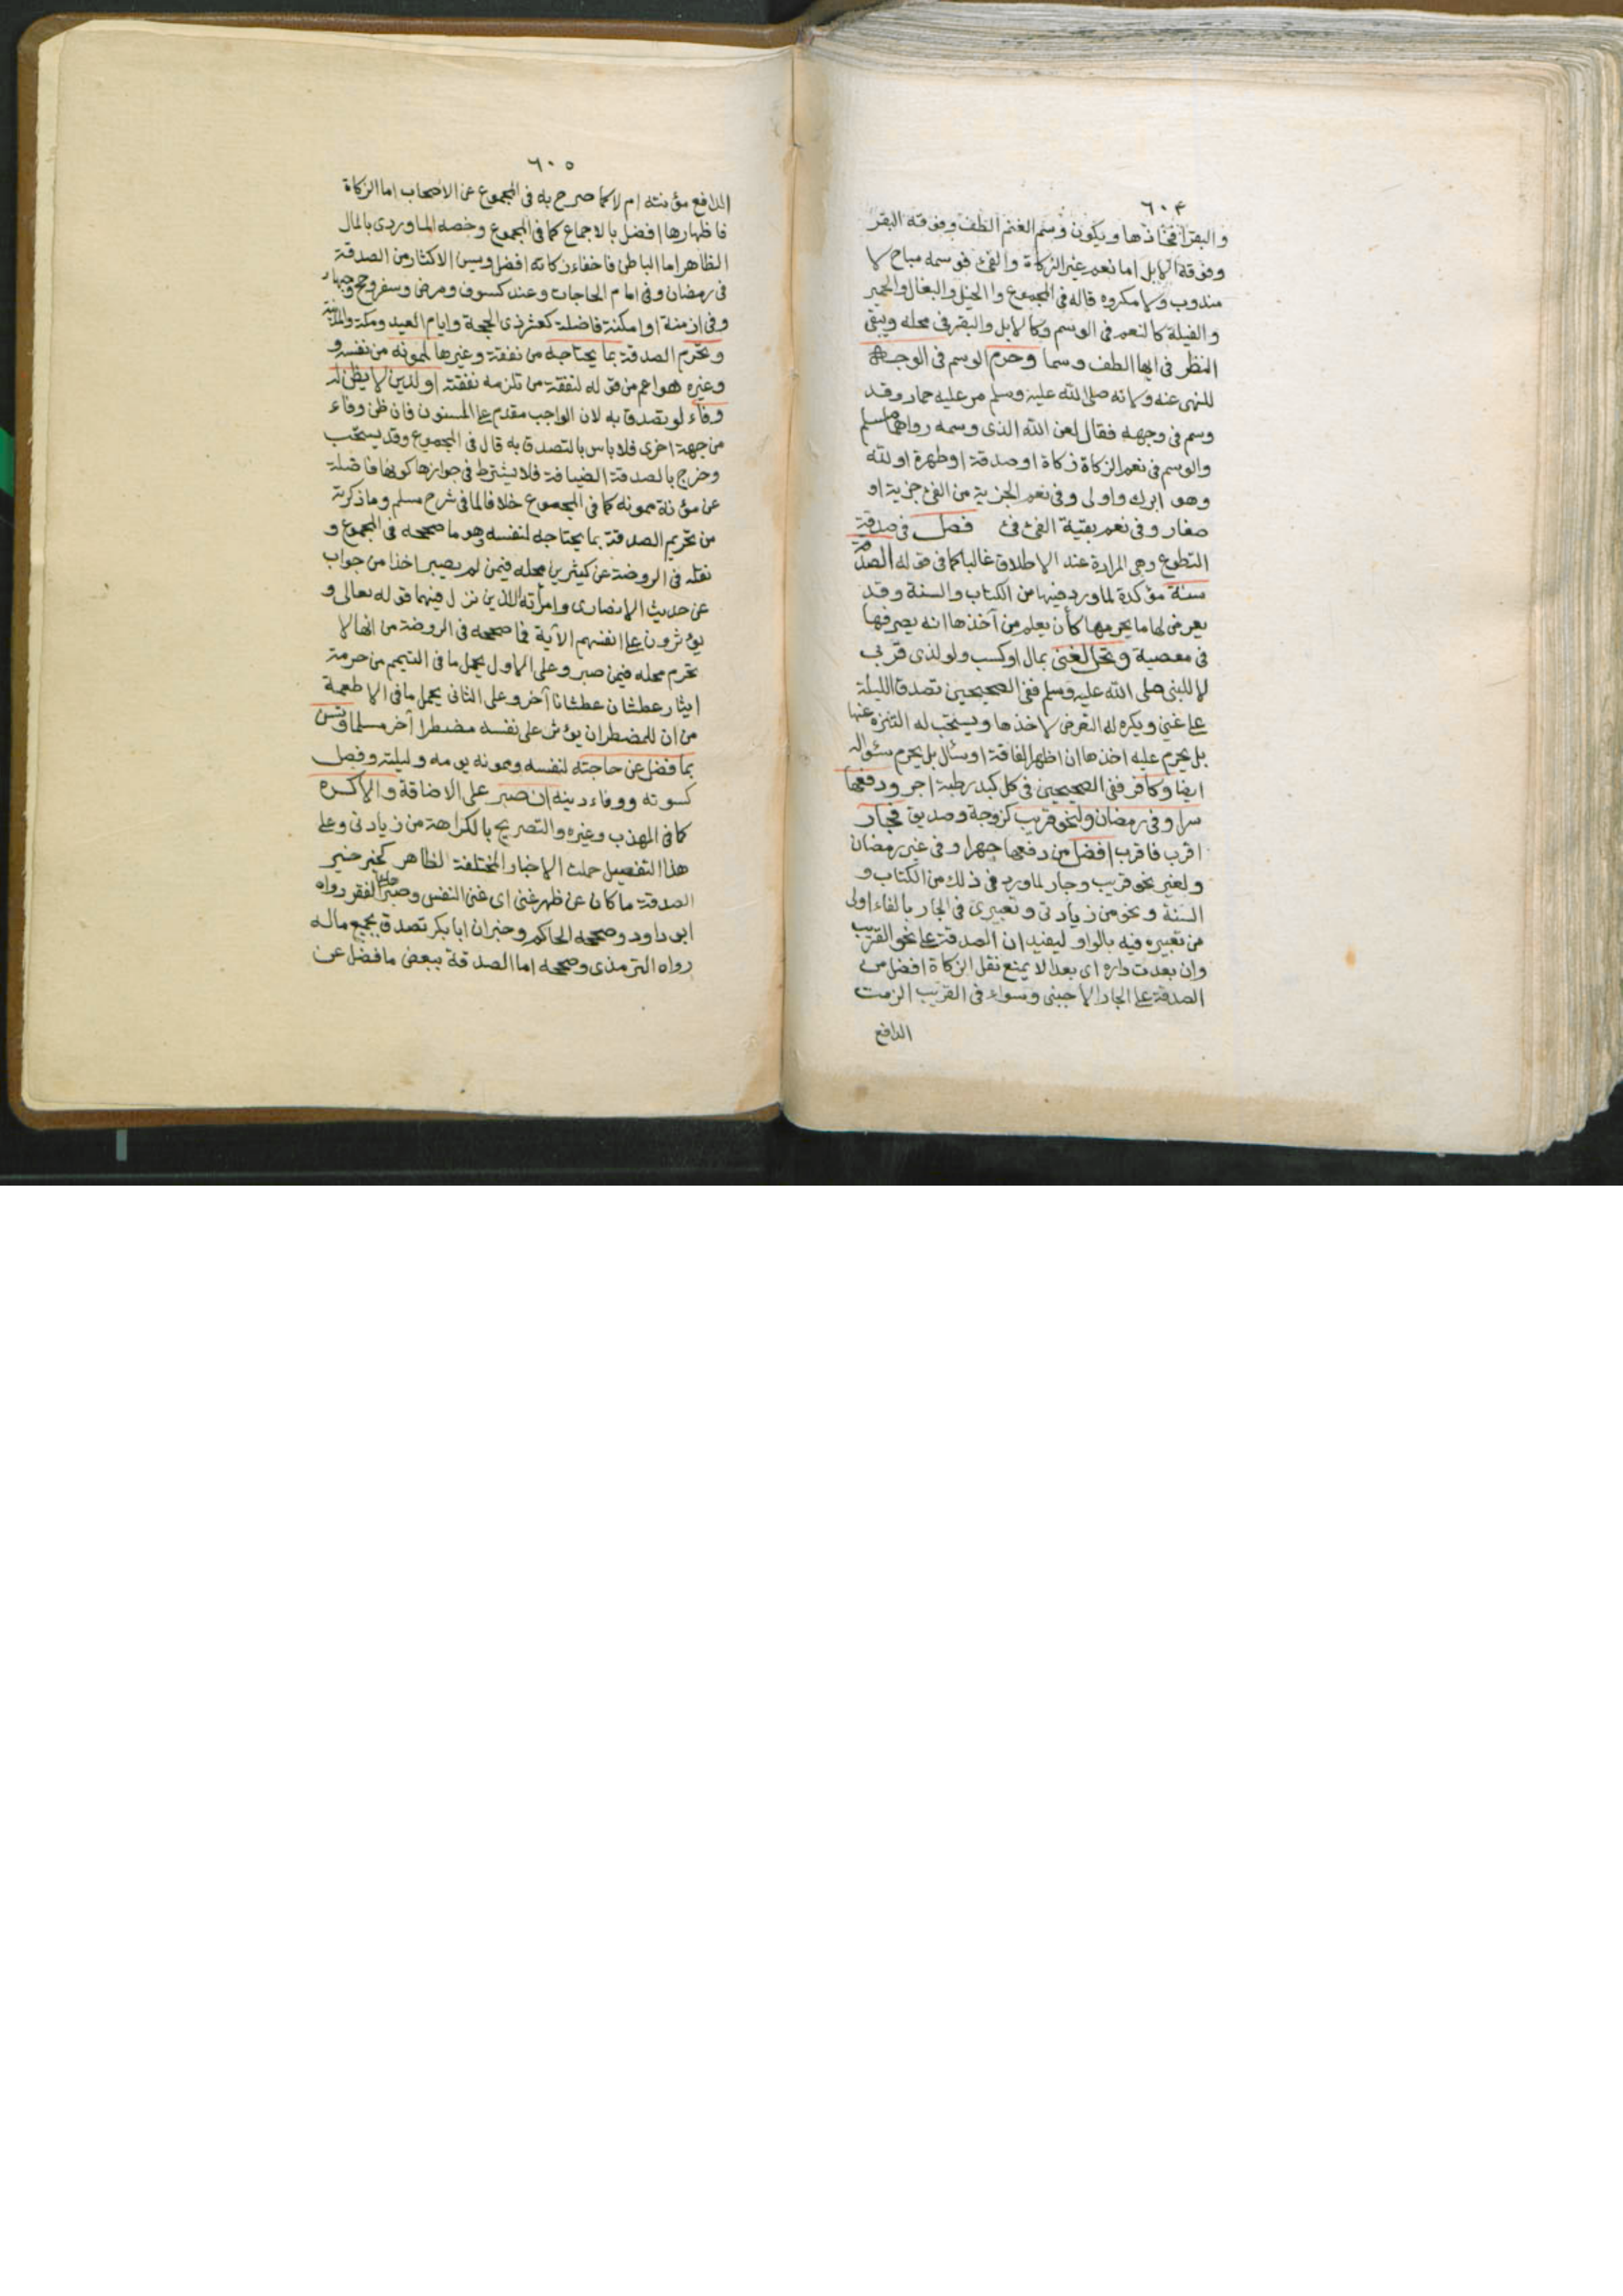 ٦٠٤
والبقر افخاذها ويكون وسم الغنم الطف وفوقه البقر
وفوقه الابل اما نعم غير الزكاة والفئ فوسمه مباح لا
مندوب ولا مكروه قاله في المجموع والخيل والبغال والحمير
والفيلة كالنعم في الوسم وكالابل والبقر في محله ويبقى
النظر في ايها الطف وسما وحرم الوسم في الوجه
للنهى عنه ولانه صلى الله عليه وسلم مر عليه حمار وقد
وسم في وجهه فقال لعن الله الذى وسمه رواهما مسلم
والوسم في نعم الزكاة زكاة او صدقة او طهرة او لله
وهو ابرك واولى وفي نعم الجزية من الفئ جزية او
صغار وفي نعم بقية الفئ فئ فصل في صدقة
التطوع وهى المرادة عند الاطلاق غالبا كما في قوله الصدقة
سنة مؤكدة لما ورد فيها من الكتاب والسنة وقد
يعرض لها ما يحرمها كأن يعلم من آخذها انه يصرفها
في معصية وتحل لغنى بمال او كسب ولو لذى قربى
لا للنبى صلى الله عليه وسلم ففي الصحيحين تصدق الليلة
على غني ويكره له التعرض لاخذها ويستحب له التنزه عنها
بل يحرم عليه اخذها ان اظهر الفاقة او سأل بل يحرم سؤاله
ايضا وكافر ففي الصحيحين في كل كبد رطبة اجر ودفعها
سرا وفي رمضان ولنحو قريب كزوجة وصديق فجار
اقرب فاقرب افضل من دفعها جهرا وفي غير رمضان
ولغير نحو قريب وجار لما ورد في ذلك من الكتاب و
السنة ونحو من زيادتى وتعبيرى في الجار بالفاء اولى
من تعبيره فيه بالواو ليفيد ان الصدقة على نحو القريب
وان بعدت داره اى بعدا لا يمنع نقل الزكاة افضل من
الصدقة على الجار الاجنبى وسواء في القريب الزمت
الدافع
٦٠٥
الدافع مؤنته ام لا كما صرح به في المجموع عن الاصحاب اما الزكاة
فاظهارها افضل بالاجماع كما في المجموع وخصه الماوردى بالمال
الظاهر اما الباطن فاخفاء زكاته افضل ويسن الاكثار من الصدقة
في رمضان وفي امام الحاجات وعند كسوف ومرض وسفر وحج وجهاد
وفي ازمنة او امكنة فاضلة كعشر ذى الحجة وايام العيد ومكة والمدينة
وتحرم الصدقة بما يحتاجه من نفقة وغيرها لممونه من نفسه و
وغيره هو اعم من قوله لنفقة من تلزمه نفقته او لدين لا يظن له
وفاء لو تصدق به لان الواجب مقدم على المسنون فان ظن وفاء
من جهة اخرى فلا باس بالتصدق به قال في المجموع وقد يستحب
وخرج بالصدقة الضيافة فلا يشترط في جوازها كونها فاضلة
عن مؤنة ممونه كما في المجموع خلافا لما في شرح مسلم وما ذكرته
من تحريم الصدقة بما يحتاجه لنفسه هو ما صححه في المجموع و
نقله في الروضة عن كثيرين محله فيمن لم يصبر اخذا من جواب
عن حديث الانصارى وامرأته اللذين نزل فيهما قوله تعالى و
يؤثرون على انفسهم الآية فما صححه في الروضة من انها لا
تحرم محله فيمن صبر وعلى الاول يحمل ما في التيمم من حرمة
ايثار عطشان عطشانا آخر وعلى الثانى يحمل ما في الاطعمة
من ان للمضطر ان يؤثر على نفسه مضطرا آخر مسلما وتسن
بما فضل عن حاجته لنفسه وممونه يومه وليلته وفصل
كسوته ووفاء دينه ان صبر على الاضاقة والا كره
كما في المهذب وغيره والتصريح بالكراهة من زيادتى وعلى
هذا التفصيل حملت الاخبار المختلفة الظاهر كخبر خير
الصدقة ما كان عن ظهر غنى اى غنى النفس وصبرها على الفقر رواه
ابو داود وصححه الحاكم وخبر ان ابا بكر تصدق بجميع ماله
رواه الترمذى وصححه اما الصدقة ببعض ما فضل عن